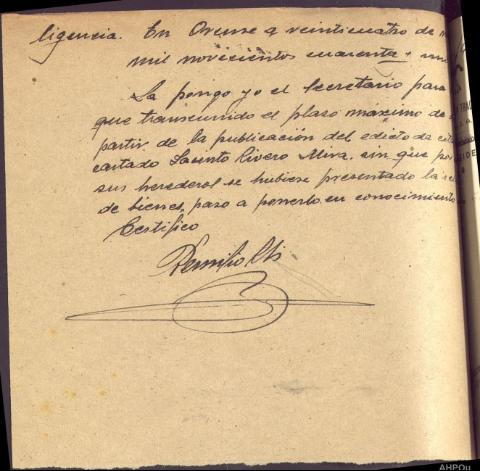 ligencia. En Orense a veinticuatro de
mil novecientos cuarenta y
La pongo yo el Secretario para
que transcurrido el plazo máximo de
partir de la publicación del edicto de
cartado Rivero Mira, sin que
sus herederos se hubiese presentado la
de bienes, paso a ponerlo en conocimiento
Certifico
AHPOu